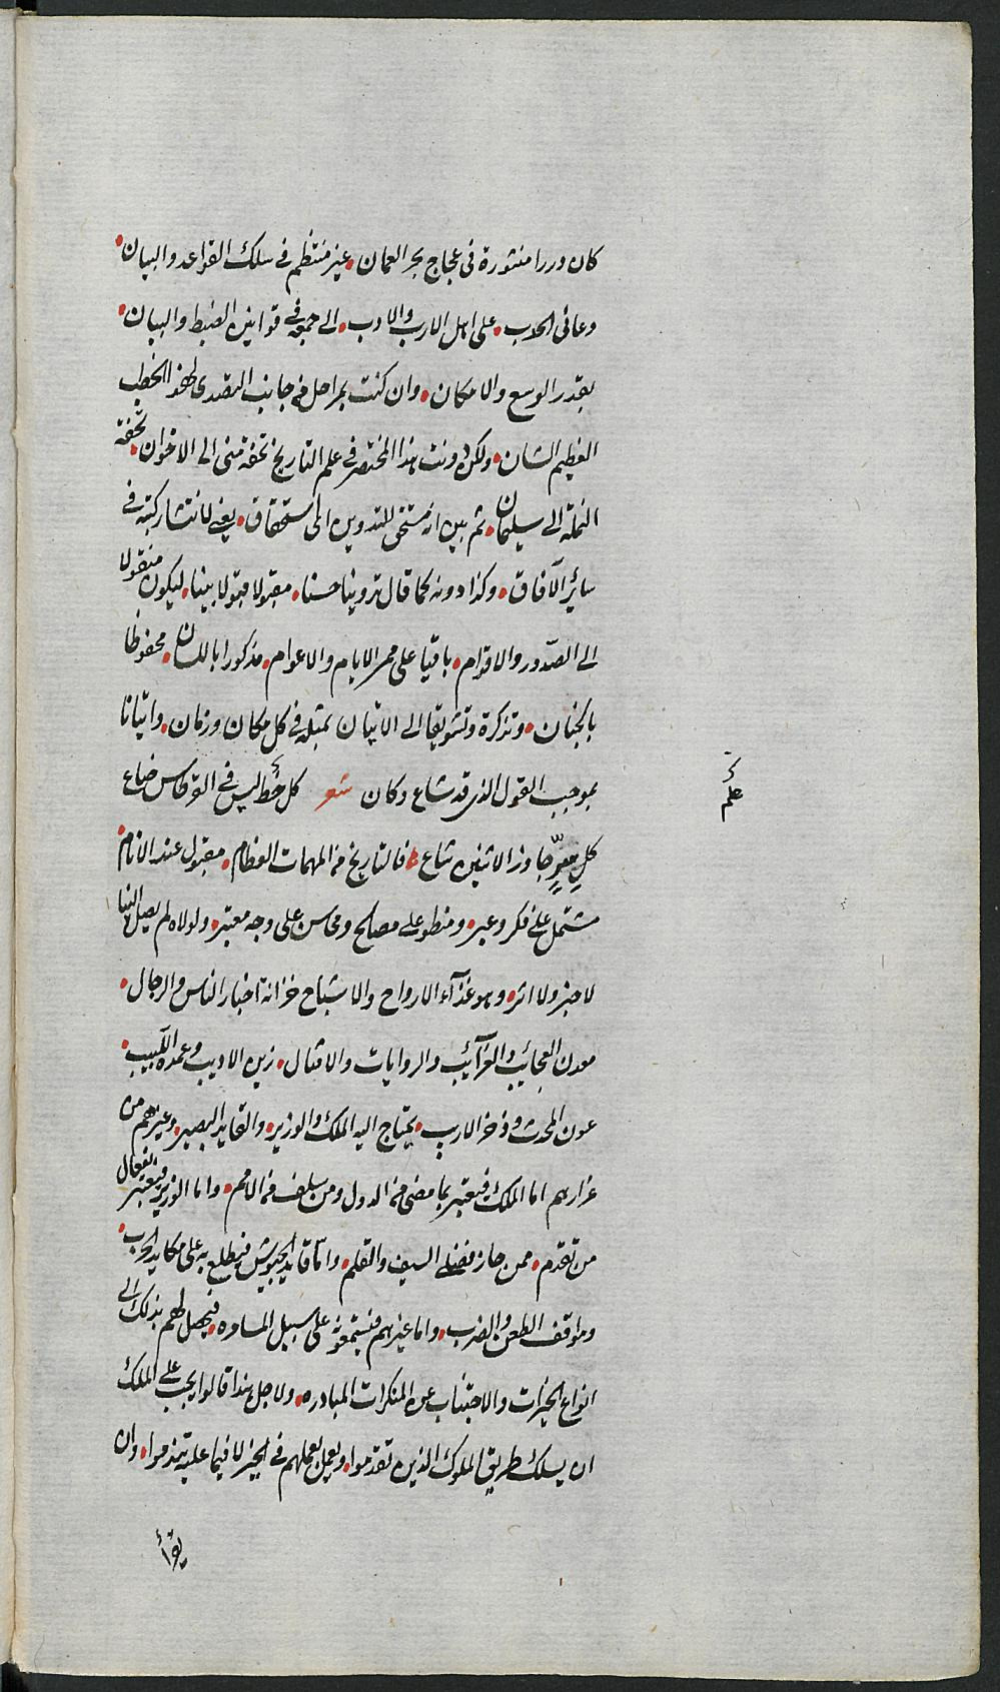 كان دررا منثورة فى عجاج بحر العمان. غير منتظم فى سلك القواعد والبيان.
وعانى الحدب. على اهل الارب والادب. الى جمعه فى قوانين الضبط والبيان.
بقدر الوسع والامكان. وان كنت بمراحل فى جانب التصدى لهذا الخطب
العظيم الشان. ولكن دونت هذا المختصر فى علم التاريخ تحفة منى الى الاخوان. تحفة
النملة الى سليمان. ثم بين انه مستحق للتدوين اى استحقاق. يعنى لانتشار كتبه فى
سائر الآفاق. وكذا دونه كما قال تدوينا حسنا. مقبولا قبولا بينا. ليكون منقولا
الى الصدور والاقوام. باقيا على ممر الايام والاعوام. مذكورا باللسان. محفوظا
بالجنان. وتذكرة وتشويقا الى الاتيان بمثله فى كل مكان وزمان. واتيانا
بموجب القول الذى قد شاع وكان شعر كل خط ليس فى القرطاس ضاع
علم
كل سرّ جاوز الاثنين شاع. فالتاريخ من المهمات العظام. مقبول عند الانام
مشتمل على فكر وعبر. ومنطو على مصالح ومحاسن على وجه معتبر. ولولاه لم يصل الينا
لا خبر ولا اثر. وهو غذآء الارواح والاشباح خزانة اخبار الناس والرجال.
معدن العجائب والغرآئب والروايات والامثال. زين الاديب وعمدة اللبيب.
عون المحدث وذخر الاريب. يحتاج اليه الملك والوزير. والقايد البصير. وغيرهم من
غزارهم اما الملك فيعتبر بما مضى من الدول ومن سلف من الامم. واما الوزير فيعتبر بفعال
من تقدم. ممن حاز فضلى السيف والقلم. واما قايد الجيوش فيطلع به على مكايد الحرب.
ومواقف الطعن والضرب. واما غيرهم فيستمعونه على سبيل المسامره. فيحصل لهم بذلك الى
انواع الخيرات والاجتناب عن المنكرات المبادره. ولاجل هذا قالوا يجب على الملك
ان يسلك طريق الملوك الذين تقدموا. ويعمل بعملهم فى الخير لا فيما عليه تندموا. وان
يقرأ